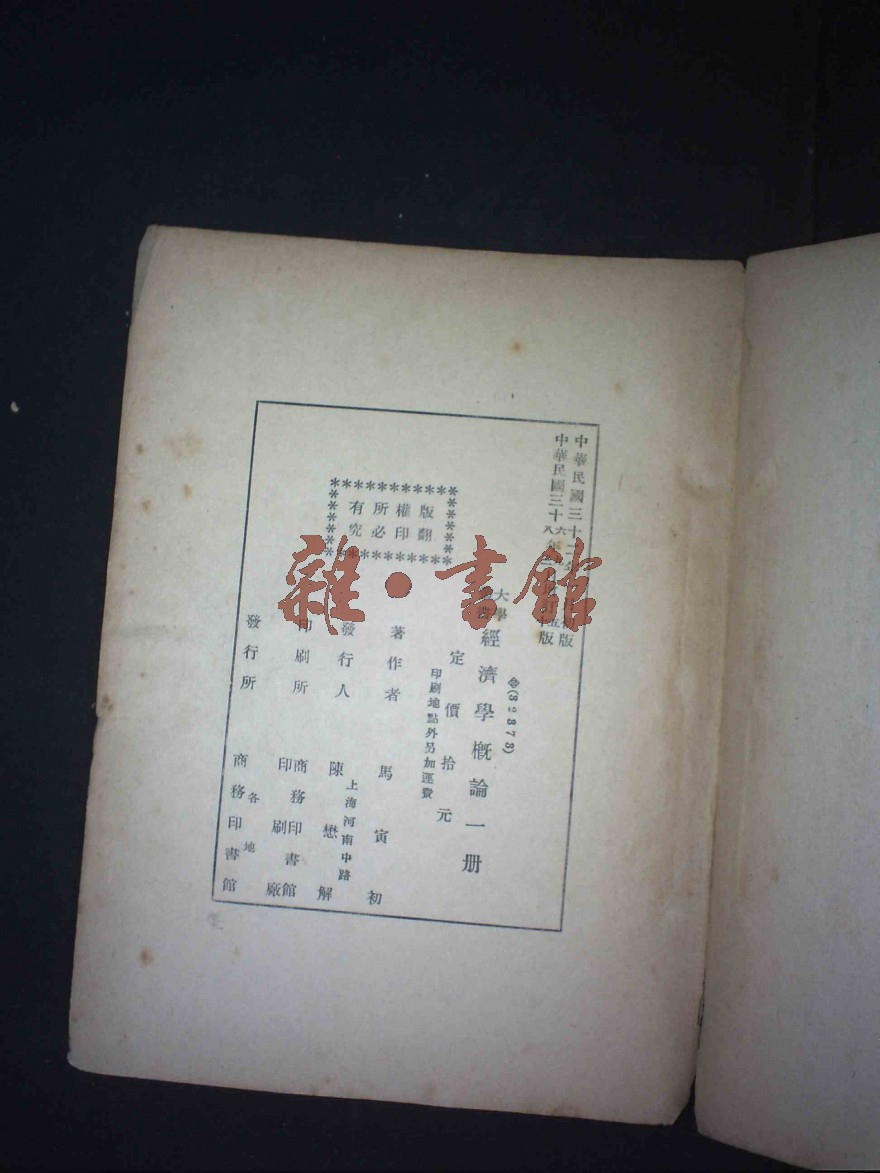 中華民國三十二年
初版
中華民國三十六年
八
版
(32373)
大學
經濟學概論一册
定價拾元
印刷地點外另加運費
版權所有
翻印必究
著作者 馬寅初
上海河南中路
發行人 陳懋解
印刷所 商務印書館
印刷廠
發行所 各地
商務印書館
雜·書館